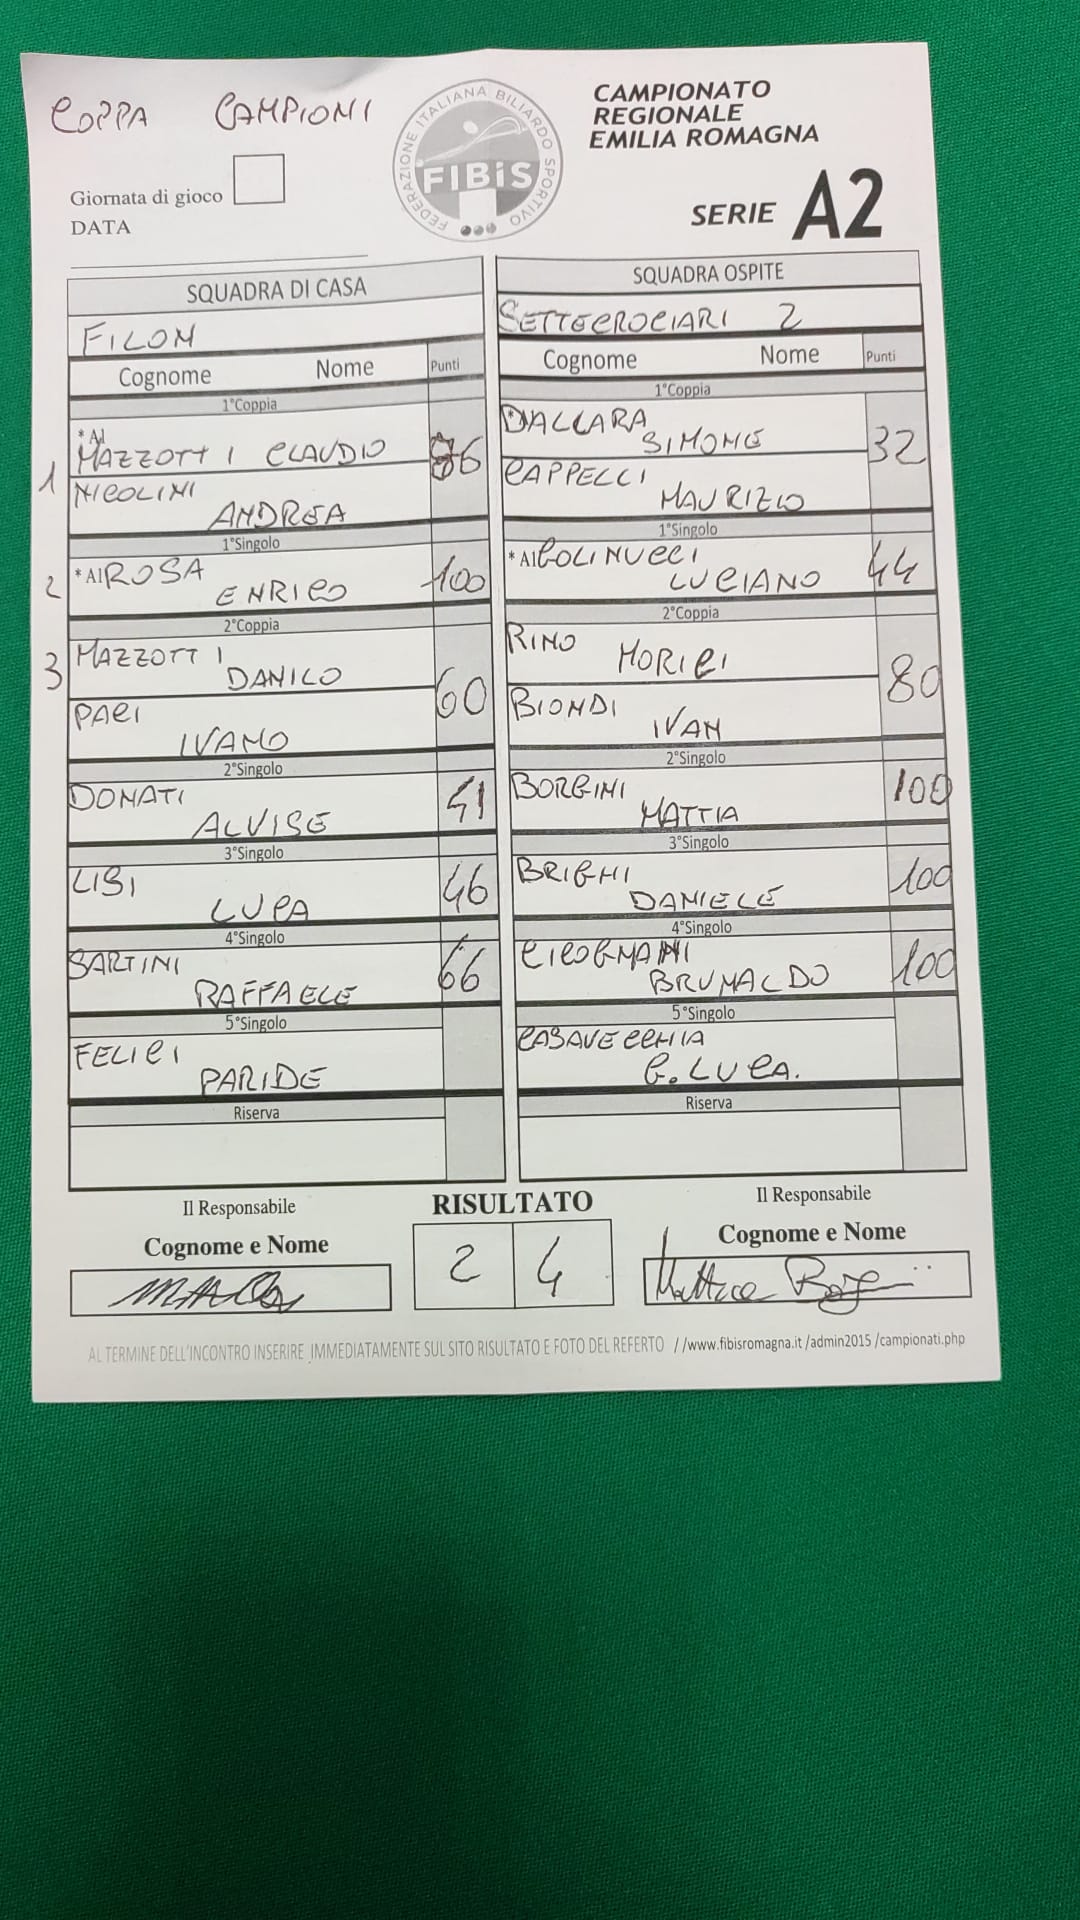 COPPA CAMPIONI
FEDERAZIONE ITALIANA BILIARDO SPORTIVO
FIBiS
CAMPIONATO
REGIONALE
EMILIA ROMAGNA
SERIE A2
Giornata di gioco
DATA
SQUADRA DI CASA
FILON
Cognome Nome Punti
1°Coppia
*Al
1 MAZZOTTI CLAUDIO 86
NICOLINI
ANDREA
1°Singolo
2 *Al ROSA 100
ENRICO
2°Coppia
3 MAZZOTTI
DANILO
60
PACI
IVANO
2°Singolo
DONATI 41
ALVISE
3°Singolo
LISI 46
LUCA
4°Singolo
SARTINI 66
RAFFAELE
5°Singolo
FELICI
PARIDE
Riserva
Il Responsabile
Cognome e Nome
SQUADRA OSPITE
SETTECROCIARI 2
Cognome Nome Punti
1°Coppia
*DALLARA
SIMONE 32
CAPPELLI
MAURIZIO
1°Singolo
*Al GOLINUCCI 44
LUCIANO
2°Coppia
RINO
MORICI
80
BIONDI
IVAN
2°Singolo
BORGINI 100
MATTIA
3°Singolo
BRIGHI 100
DANIELE
4°Singolo
CICOGNANI 100
BRUNALDO
5°Singolo
CASAVECCHIA
G.LUCA.
Riserva
RISULTATO
2 4
Il Responsabile
Cognome e Nome
Mattia Borgini
AL TERMINE DELL'INCONTRO INSERIRE IMMEDIATAMENTE SUL SITO RISULTATO E FOTO DEL REFERTO //www.fibisromagna.it/admin2015/campionati.php